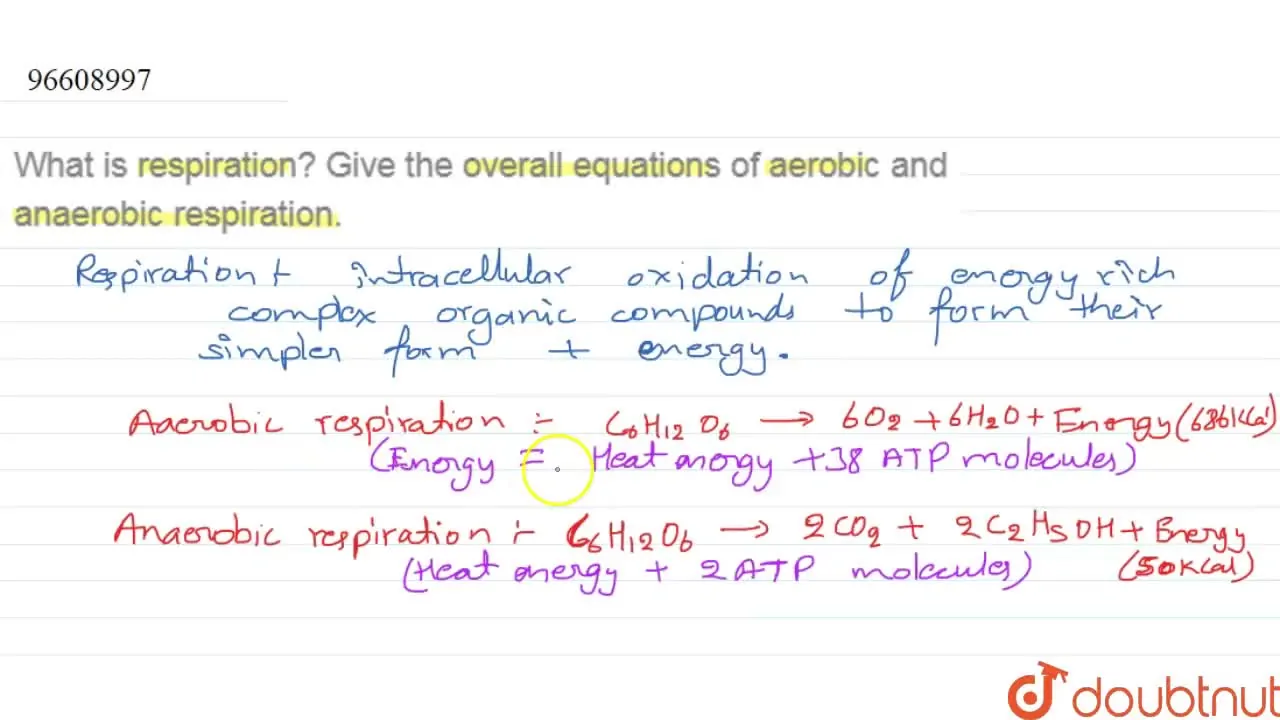 96608997
What is respiration? Give the overall equations of aerobic and
anaerobic respiration.
Respiration :- intracellular oxidation of energy rich
complex organic compounds to form their
simpler form + energy.
Aaerobic respiration :- C6H12O6 → 6O2 + 6H2O + Energy (686 KCal)
(Energy = Heat energy + 38 ATP molecules)
Anaerobic respiration :- C6H12O6 → 2CO2 + 2C2H5OH + Energy
(Heat energy + 2 ATP molecules) (50 KCal)
doubtnut